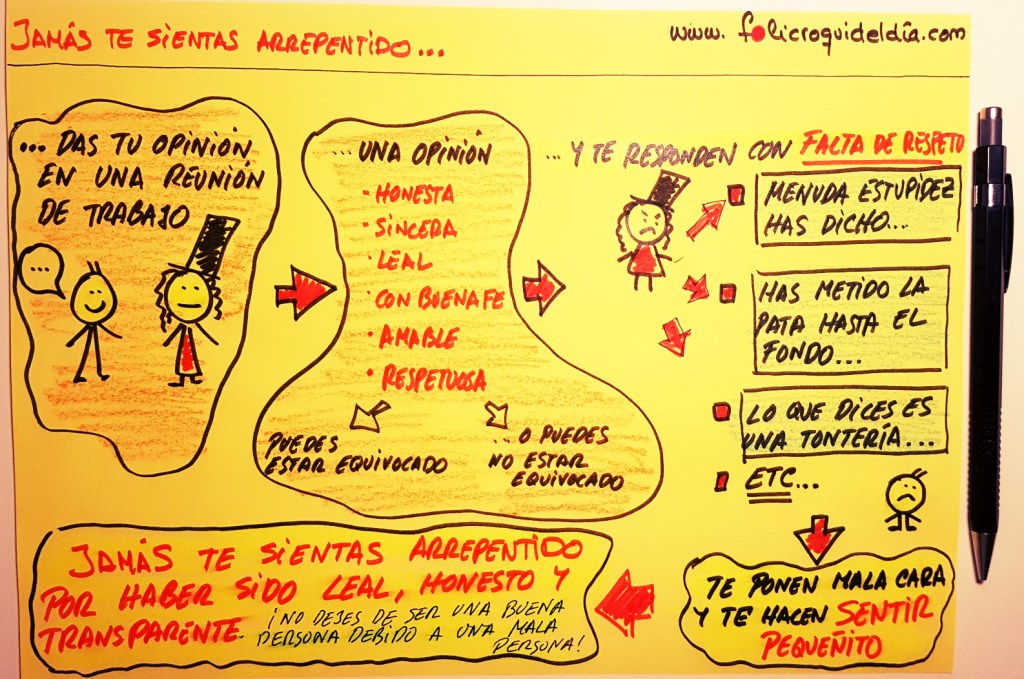 JAMÁS TE SIENTAS ARREPENTIDO...
www.folicroquideldía.com
... DAS TU OPINIÓN
EN UNA REUNIÓN
DE TRABAJO
...
... UNA OPINIÓN
· HONESTA
· SINCERA
· LEAL
· CON BUENA FE
· AMABLE
· RESPETUOSA
PUEDES
ESTAR EQUIVOCADO
... O PUEDES
NO ESTAR
EQUIVOCADO
... Y TE RESPONDEN CON FALTA DE RESPETO
MENUDA ESTUPIDEZ
HAS DICHO...
HAS METIDO LA
PATA HASTA EL
FONDO...
LO QUE DICES ES
UNA TONTERÍA...
ETC...
TE PONEN MALA CARA
Y TE HACEN SENTIR
PEQUEÑITO
JAMÁS TE SIENTAS ARREPENTIDO
POR HABER SIDO LEAL, HONESTO Y
TRANSPARENTE.
¡NO DEJES DE SER UNA BUENA
PERSONA DEBIDO A UNA MALA
PERSONA!